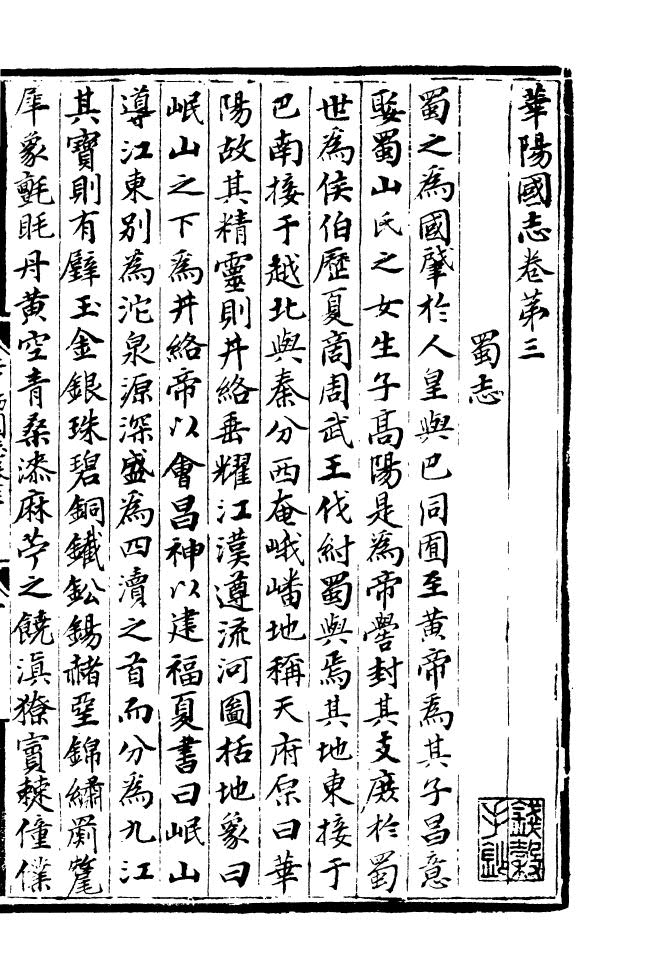 華陽國志卷第三
蜀志
蜀之為國肇於人皇與巴同囿至黃帝為其子昌意
娶蜀山氏之女生子高陽是為帝嚳封其支庶於蜀
世為侯伯歷夏商周武王伐紂蜀與焉其地東接于
巴南接于越北與秦分西奄峨嶓地稱天府原曰華
陽故其精靈則井絡垂耀江漢遵流河圖括地象曰
岷山之下為井絡帝以會昌神以建福夏書曰岷山
導江東別為沱泉源深盛為四瀆之首而分為九江
其寶則有璧玉金銀珠碧銅鐵鈆錫赭堊錦繡罽氂
犀象氈毦丹黃空青桑漆麻苧之饒滇獠賨僰僮僕
錢穀手鈔